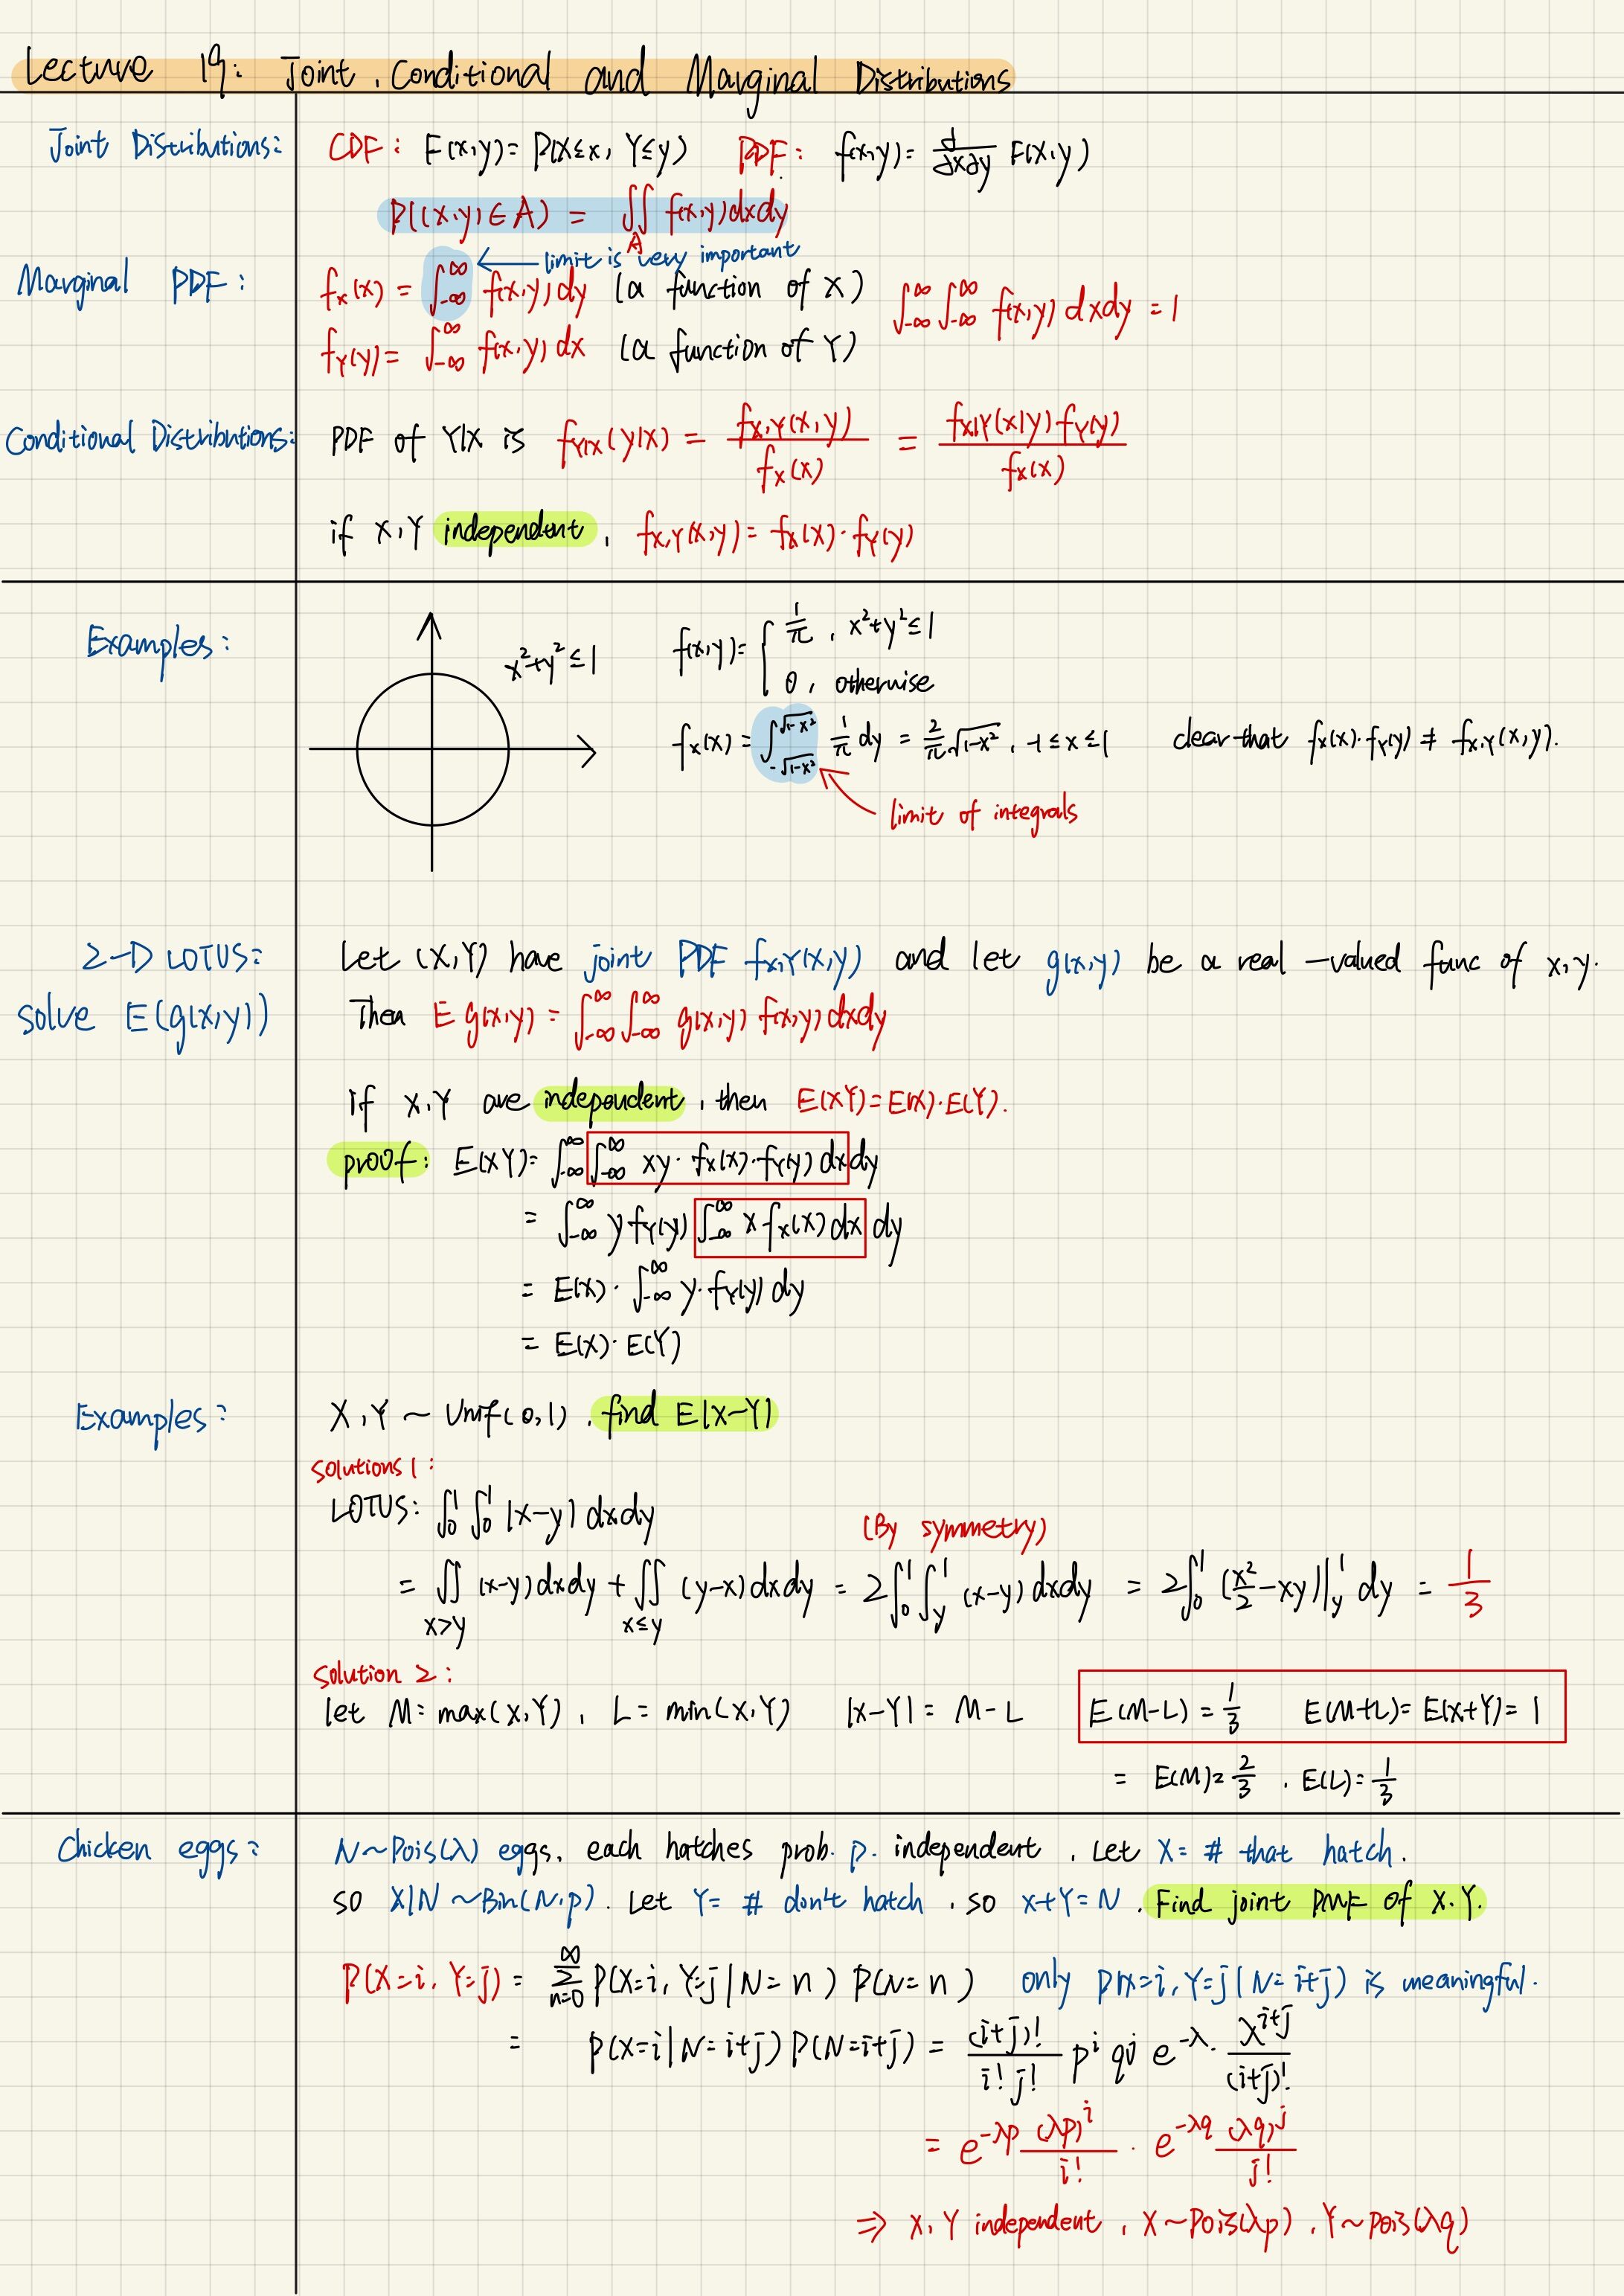 Lecture 19: Joint, Conditional and Marginal Distributions
Joint Distributions: CDF: F(x,y) = P(X≤x, Y≤y) PDF: f(x,y) = d/dxdy F(x,y)
P((X,y)∈A) = ∬_A f(x,y)dxdy
← limit is very important
Marginal PDF: f_X(x) = ∫_{-∞}^{∞} f(x,y)dy (a function of X) ∫_{-∞}^{∞} ∫_{-∞}^{∞} f(x,y)dxdy = 1
f_Y(y) = ∫_{-∞}^{∞} f(x,y)dx (a function of Y)
Conditional Distributions: PDF of Y|X is f_{Y|X}(y|x) = f_{X,Y}(x,y) / f_X(x) = f_{X|Y}(x|y)f_Y(y) / f_X(x)
if X,Y independent, f_{X,Y}(x,y) = f_X(x)·f_Y(y)
Examples: x²+y²≤1 f(x,y) = { 1/π, x²+y²≤1
0, otherwise
f_X(x) = ∫_{-√(1-x²)}^{√(1-x²)} 1/π dy = 2/π √(1-x²), -1≤x≤1 clear that f_X(x)·f_Y(y) ≠ f_{X,Y}(x,y).
limit of integrals
2-D LOTUS: Let (X,Y) have joint PDF f_{X,Y}(x,y) and let g(x,y) be a real-valued func of x,y.
solve E(g(x,y)) Then E g(x,y) = ∫_{-∞}^{∞} ∫_{-∞}^{∞} g(x,y) f(x,y) dxdy
If X,Y are independent, then E(XY)=E(X)·E(Y).
proof: E(XY) = ∫_{-∞}^{∞} ∫_{-∞}^{∞} xy·f_X(x)·f_Y(y) dxdy
= ∫_{-∞}^{∞} y f_Y(y) ∫_{-∞}^{∞} x f_X(x) dx dy
= E(X)·∫_{-∞}^{∞} y·f_Y(y) dy
= E(X)·E(Y)
Examples: X,Y ~ Unif(0,1), find E|X-Y|
Solutions 1:
LOTUS: ∫_0^1 ∫_0^1 |x-y| dxdy
(By symmetry)
= ∬_{x>y} (x-y)dxdy + ∬_{x≤y} (y-x)dxdy = 2∫_0^1 ∫_y^1 (x-y) dxdy = 2∫_0^1 (x²/2 - xy)|_y^1 dy = 1/3
Solution 2:
let M = max(X,Y), L = min(X,Y) |X-Y| = M-L E(M-L) = 1/3 E(M+L) = E(X+Y) = 1
= E(M) = 2/3, E(L) = 1/3
Chicken eggs: N~Pois(λ) eggs, each hatches prob. p. independent, Let X = # that hatch.
so X|N ~Bin(N,p). Let Y= # don't hatch, so x+Y=N. Find joint PMF of X.Y.
P(X=i, Y=j) = ∑_{n=0}^{∞} P(X=i, Y=j | N=n) P(N=n) only P(X=i, Y=j | N=i+j) is meaningful.
= P(X=i | N=i+j) P(N=i+j) = (i+j)!/(i!j!) p^i q^j e^{-λ}·λ^{i+j}/(i+j)!
= e^{-λp} (λp)^i/i! · e^{-λq} (λq)^j/j!
⇒ X,Y independent, X~Pois(λp), Y~Pois(λq)